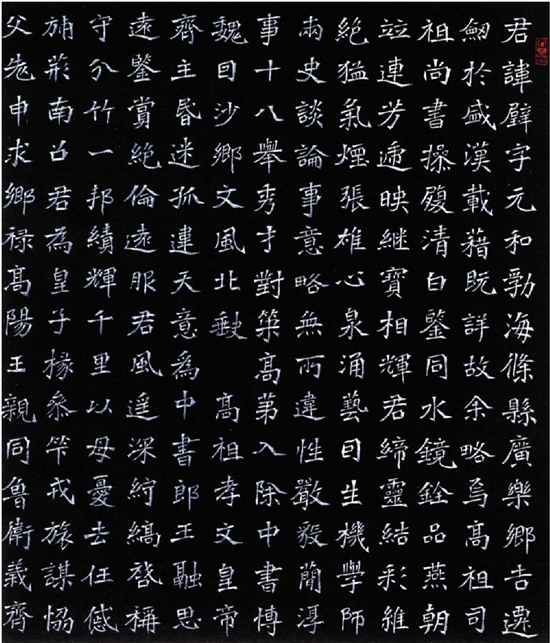 君諱璧字元和勃海條縣廣樂鄉吉遷
劒於盛漢載藉既詳故余略焉高祖司
祖尚書操履清白鑒同水鏡銓品燕朝
竝連芳遞映継寶相輝君締靈結彩維
絕猛氣煙張雄心泉涌藝自生機學師
兩史談論事意略無所違性嚴毅簡淳
事十八舉秀才對策高第入除中書博
魏自沙鄉文風北皷 高祖孝文皇帝
齊主昏迷孤連天意爲中書郎王融思
遠鑒賞絕倫遠服君風遙深紵縞啓稱
守分竹一邦績輝千里以母憂去任慼
旆荊南召君為皇子掾參竿戎旅謀協
父老申求鄉祿高陽王親同魯衛義齊